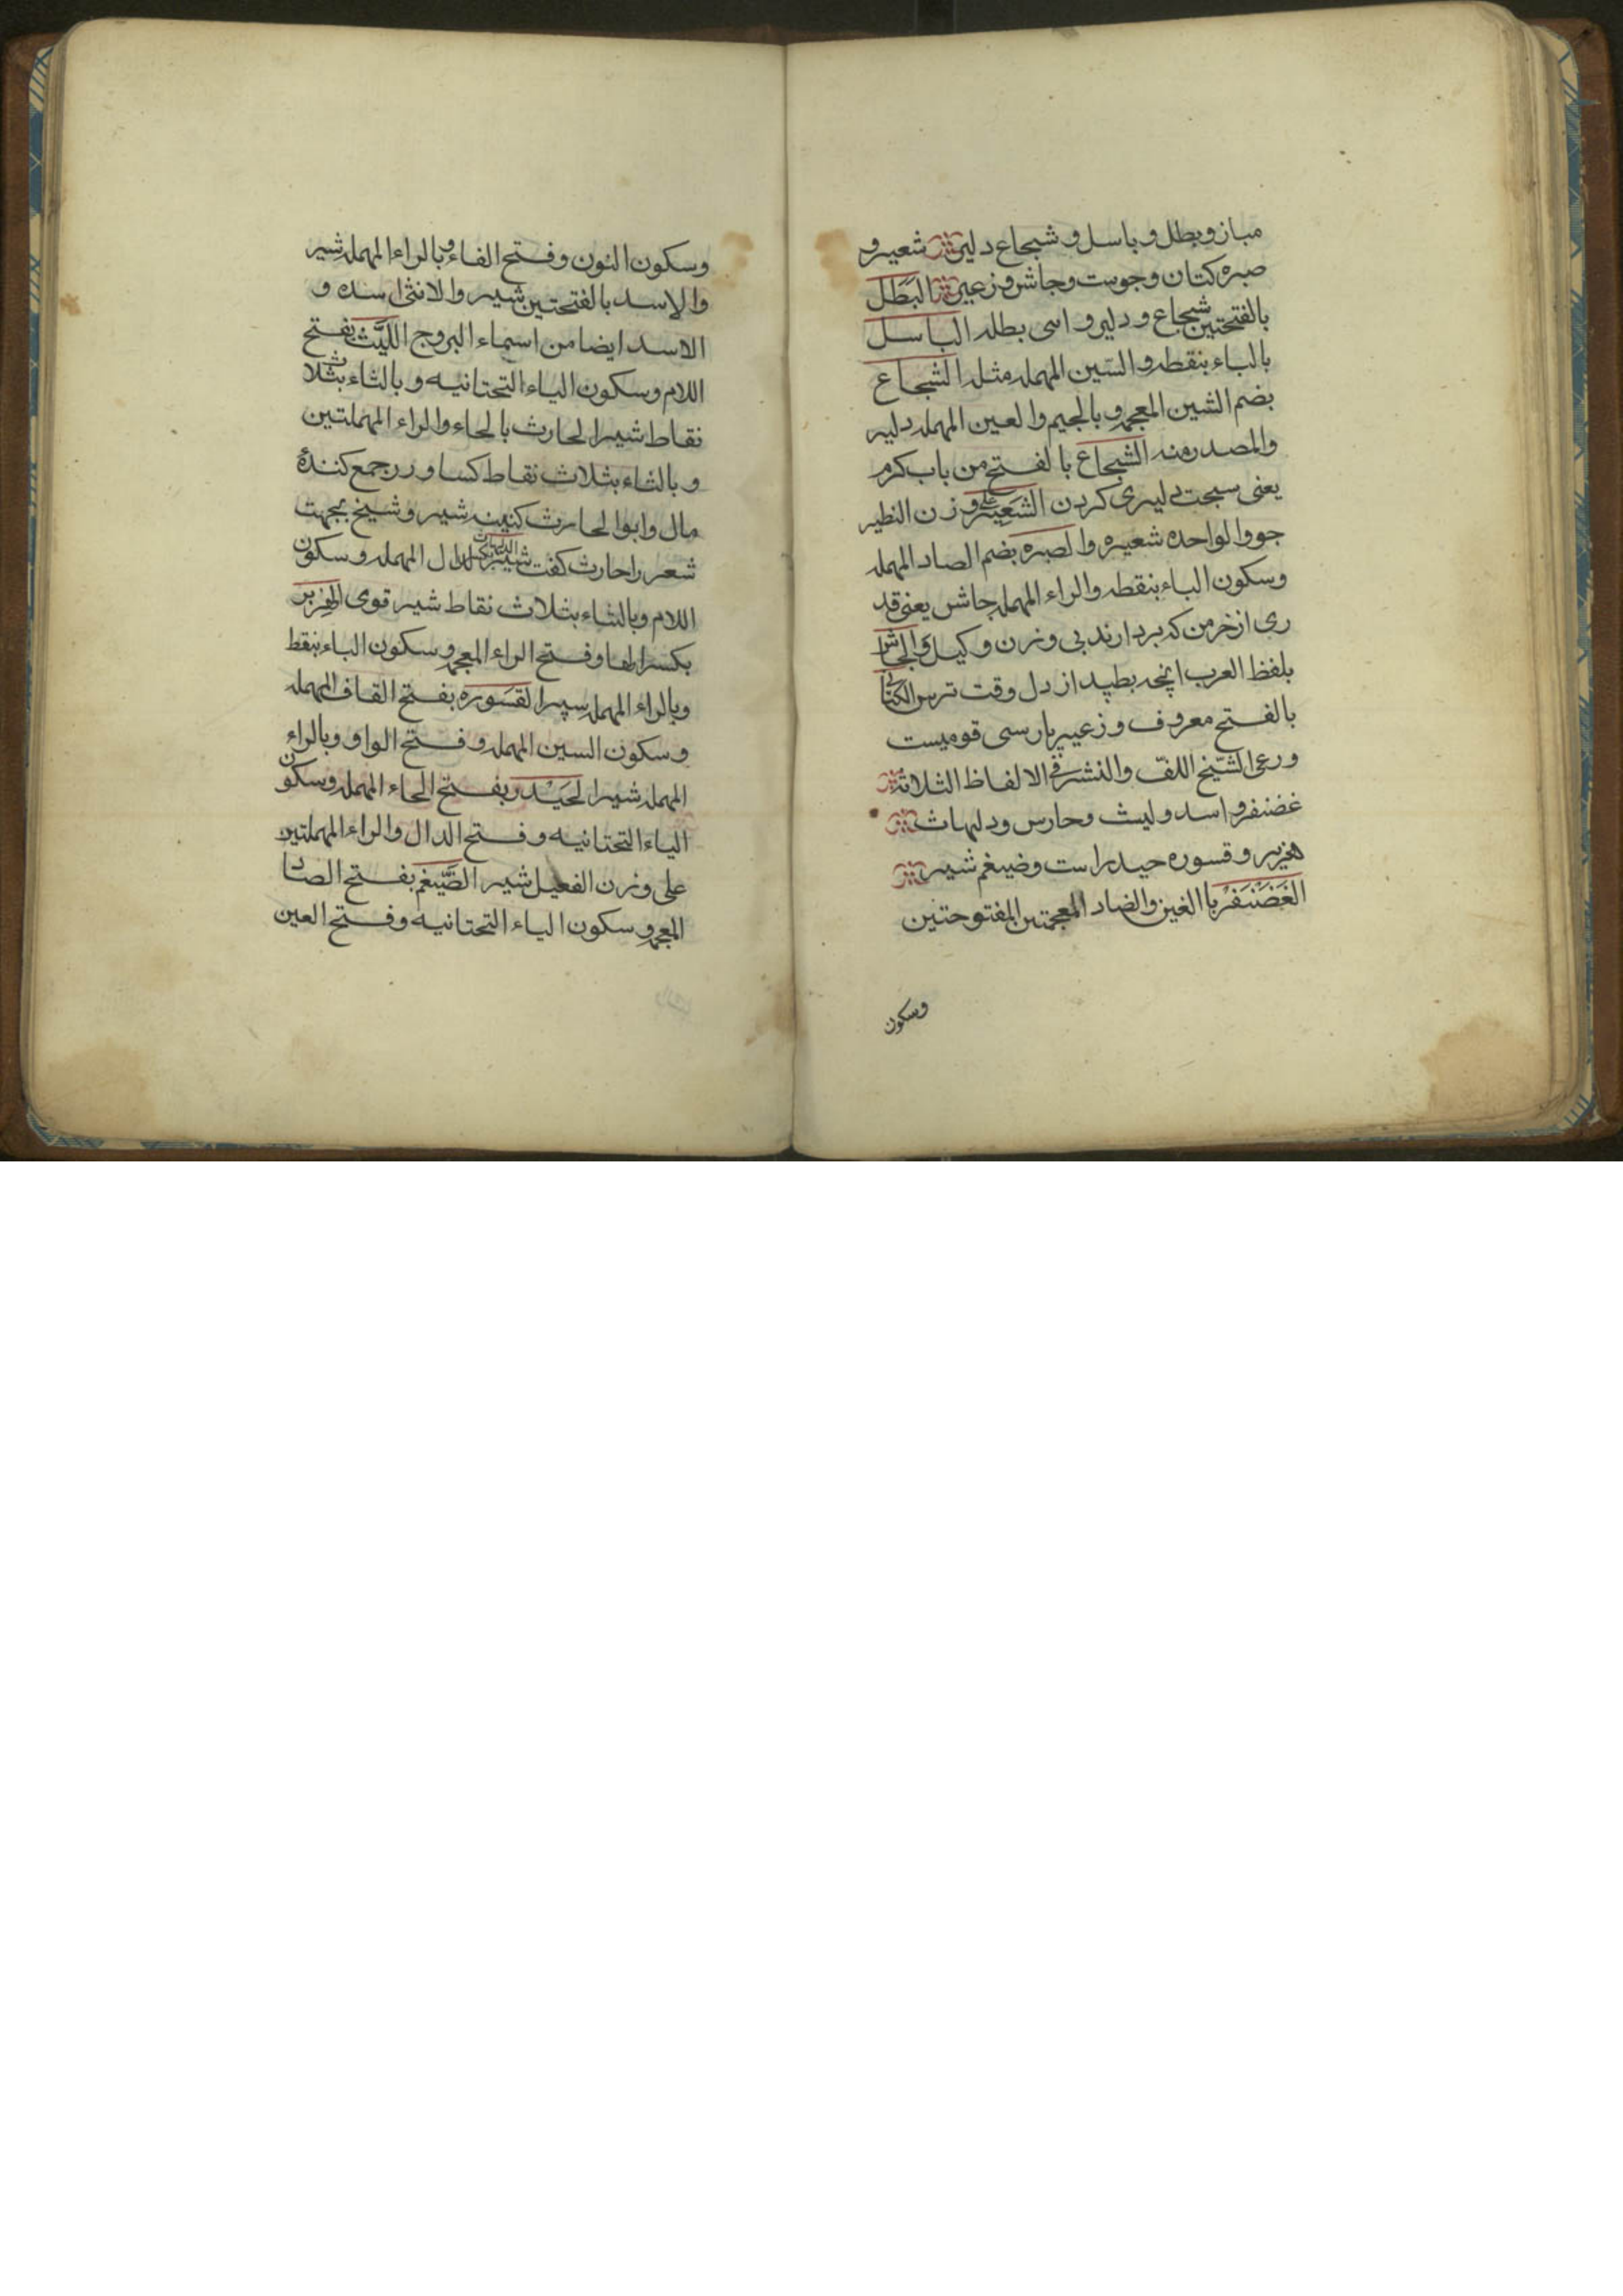 مباز و بطل و باسل و شجاع دلیر شعیر و
صبره کتان و جوست و جاش و زعیر البَطَل
بالفتحتین شجاع و دلیر و اسی بطله الباسل
بالباء بنقطه و السّین المهمله مثله الشجاع
بضم الشین المعجمه و بالجیم و العین المهمله دلیر
والمصدر منه الشجاع بالفتح من باب کرم
یعنی سبحت دلیری کردن الشَعیر علی وزن النظیر
جو والواحده شعیره والصبره بضم الصاد المهمله
وسکون الباء بنقطه والراء المهمله جاش یعنی قد
ری از خرمن که بردارند بی وزن و کیل و الجاش
بلفظ العرب انچه بطپد از دل وقت ترس الکتان
بالفتح معروف و زعیر پارسی قومیست
ورعی الشیخ اللفّ والنشر فی الالفاظ الثلاثة
غضنفر و اسد و لیث و حارس و دلهاث
هزبر و قسوره حیدر است و ضیغم شیر
الغَضَنْفَرْ باالغین والضاد المعجمتین المفتوحتین
وسکون
وسکون النون وفتح الفاء و بالراء المهمله شیر
والاسد بالفتحتین شیر والانثی اسده و
الاسد ایضا من اسماء البروج اللَّیْث بفتح
اللام وسکون الیاء التحتانیه و بالثاء بثلاث
نقاط شیر الحارث بالحاء والراء المهملتین
و بالثاء بثلاث نقاط کساورر جمع کنندهٔ
مال وابوالحارث کنیه شیر و شیخ بجهت
شعر را حارث کفت شیر الدلهاث بکسر الدال المهمله وسکون
اللام وبالثاء بثلاث نقاط شیر قوی الهِزبر
بکسر الها وفتح الراء المعجمه وسکون الباء بنقط
وبالراء المهمله سپر القَسْوَره بفتح القاف المهمله
وسکون السین المهمله وفتح الواو وبالراء
المهمله شیر الحَیْدر بفتح الحاء المهمله وسکون
الیاء التحتانیه وفتح الدال والراء المهملتین
علی وزن الفعیل شیر الضَّیْغم بفتح الصاد
المعجمه وسکون الیاء التحتانیه وفتح العین